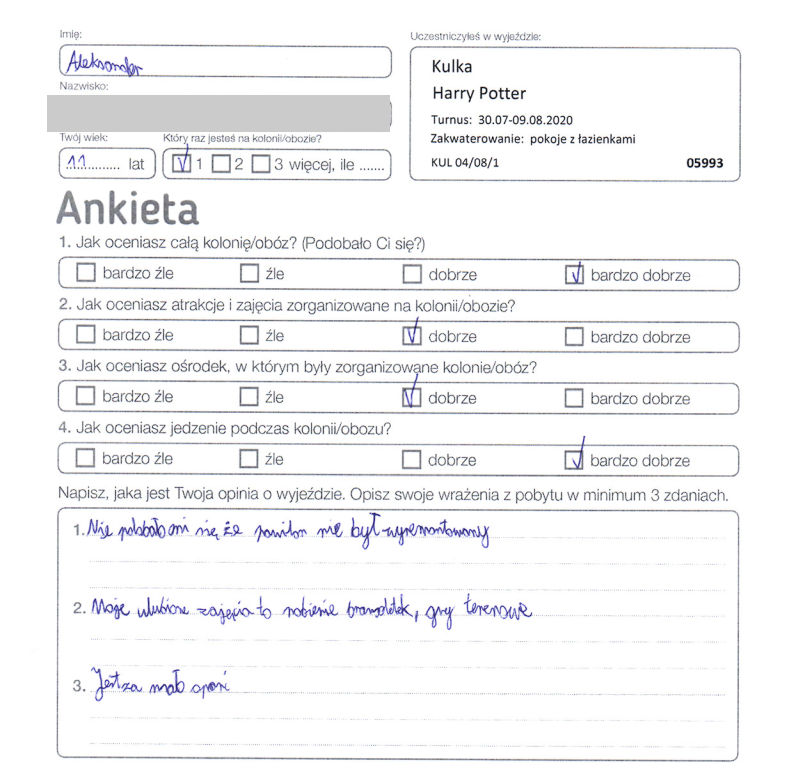 Imię:
Aleksander
Nazwisko:
Twój wiek:
11 lat
Który raz jesteś na kolonii/obozie?
1 2 3 więcej, ile .......
Uczestniczyłeś w wyjeździe:
Kulka
Harry Potter
Turnus: 30.07-09.08.2020
Zakwaterowanie: pokoje z łazienkami
KUL 04/08/1 05993
Ankieta
1. Jak oceniasz całą kolonię/obóz? (Podobało Ci się?)
bardzo źle źle dobrze bardzo dobrze
2. Jak oceniasz atrakcje i zajęcia zorganizowane na kolonii/obozie?
bardzo źle źle dobrze bardzo dobrze
3. Jak oceniasz ośrodek, w którym były zorganizowane kolonie/obóz?
bardzo źle źle dobrze bardzo dobrze
4. Jak oceniasz jedzenie podczas kolonii/obozu?
bardzo źle źle dobrze bardzo dobrze
Napisz, jaka jest Twoja opinia o wyjeździe. Opisz swoje wrażenia z pobytu w minimum 3 zdaniach.
1. Nie podobało mi się że pawilon nie był wyremontowany
2. Moje ulubione zajęcia to robienie bransoletek, gry terenowe
3. Jest za mało